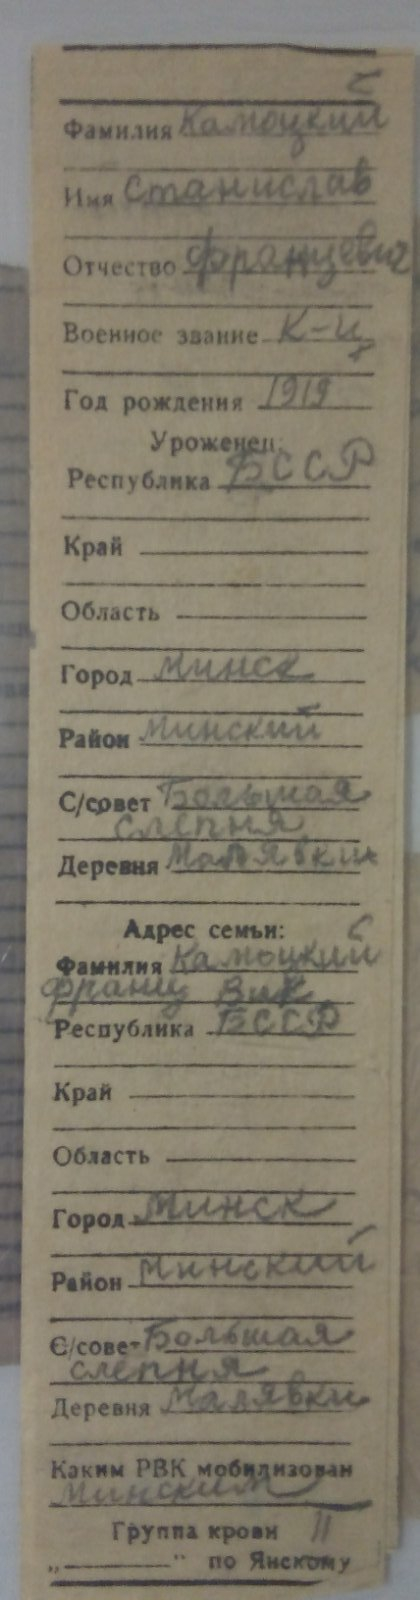 Фамилия Камоцкий
Имя Станислав
Отчество Францевич
Военное звание К-ц
Год рождения 1919
Уроженец:
Республика БССР
Край
Область
Город Минск
Район Минский
С/совет Большая
слепня
Деревня Малявки
Адрес семьи:
Фамилия Камоцкий
Франц Вик
Республика БССР
Край
Область
Город Минск
Район Минский
С/совет Большая
слепня
Деревня Малявки
Каким РВК мобилизован
Минским
Группа крови II
„ “ по Янскому